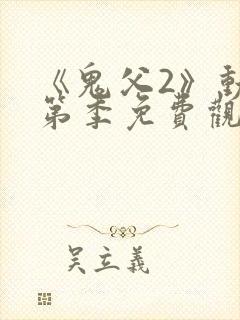 《鬼父2》動
第季免費觀
吴立義